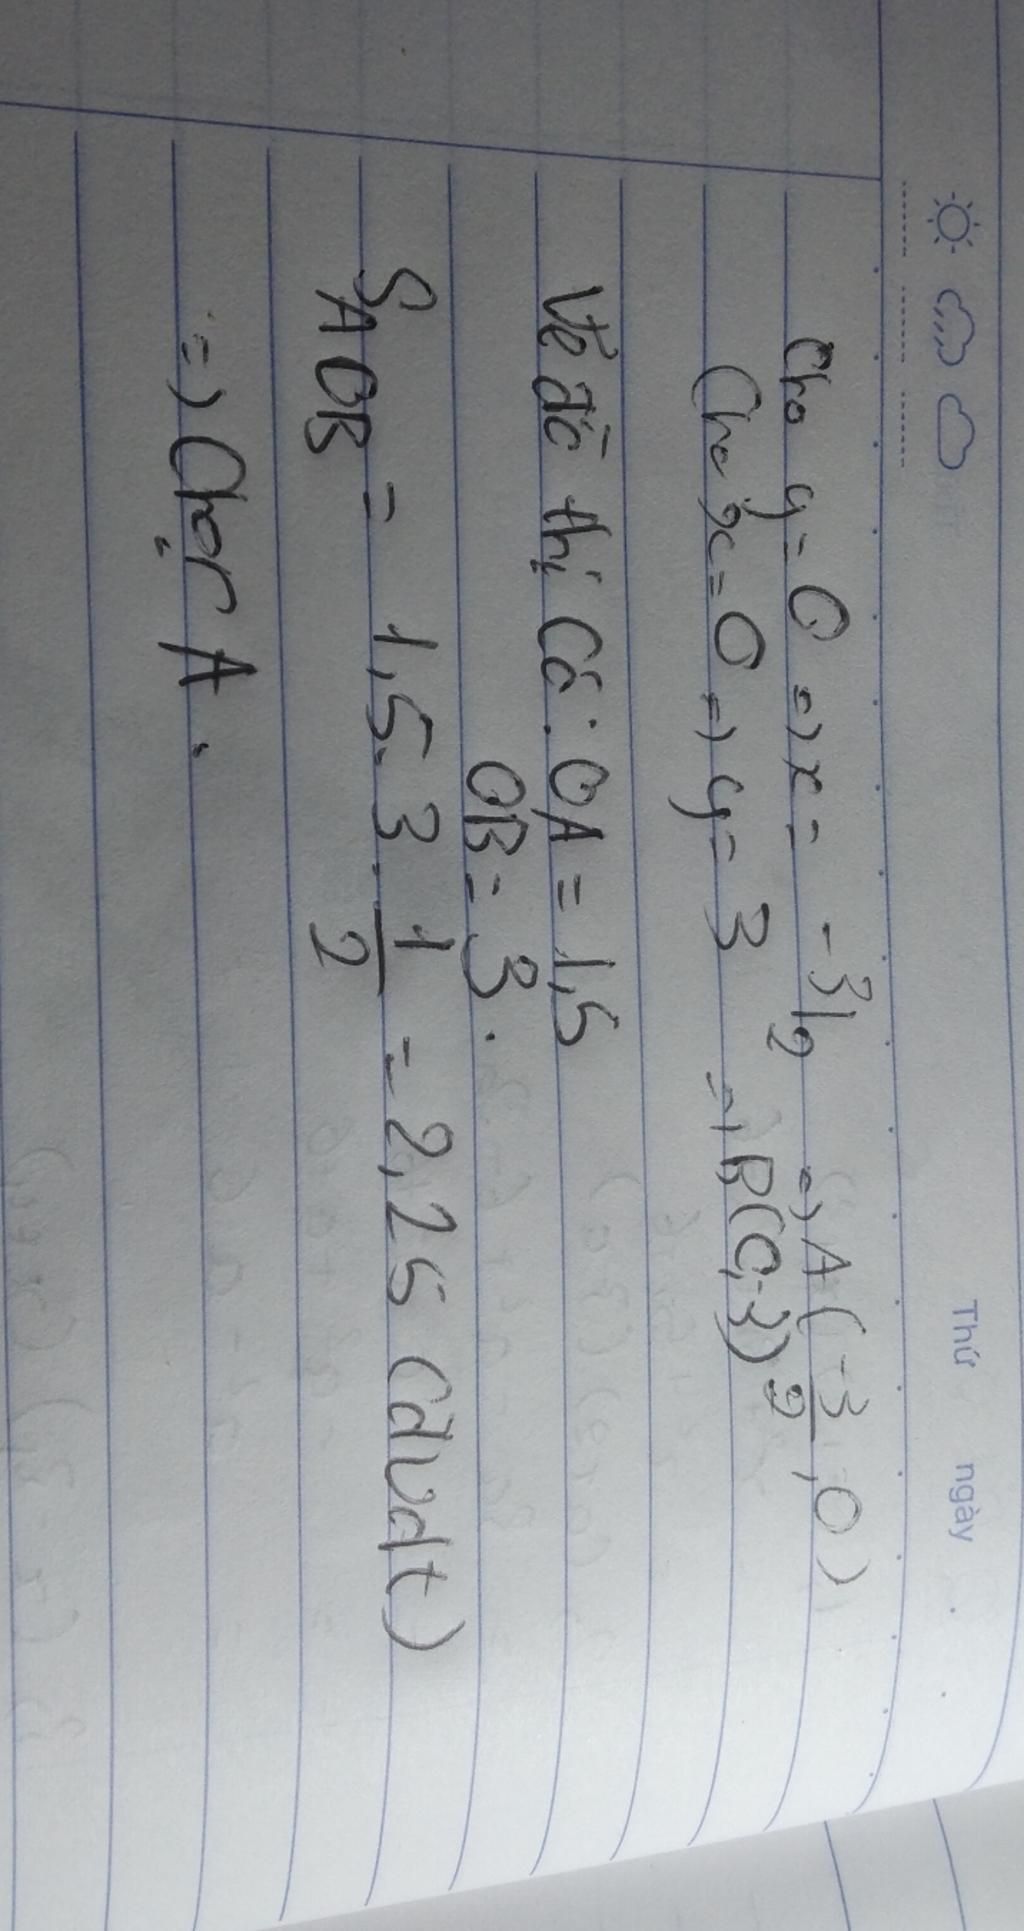 Thứ ngày
Cho y = 0 => x = -3/2 => A(-3/2, 0)
Cho x = 0 => y = 3 => B(0, 3)
Vẽ đồ thị Có: OA = 1,5
OB = 3.
SAOB = 1,5.3.1/2 = 2,25 (đvdt)
=> Chọn A.